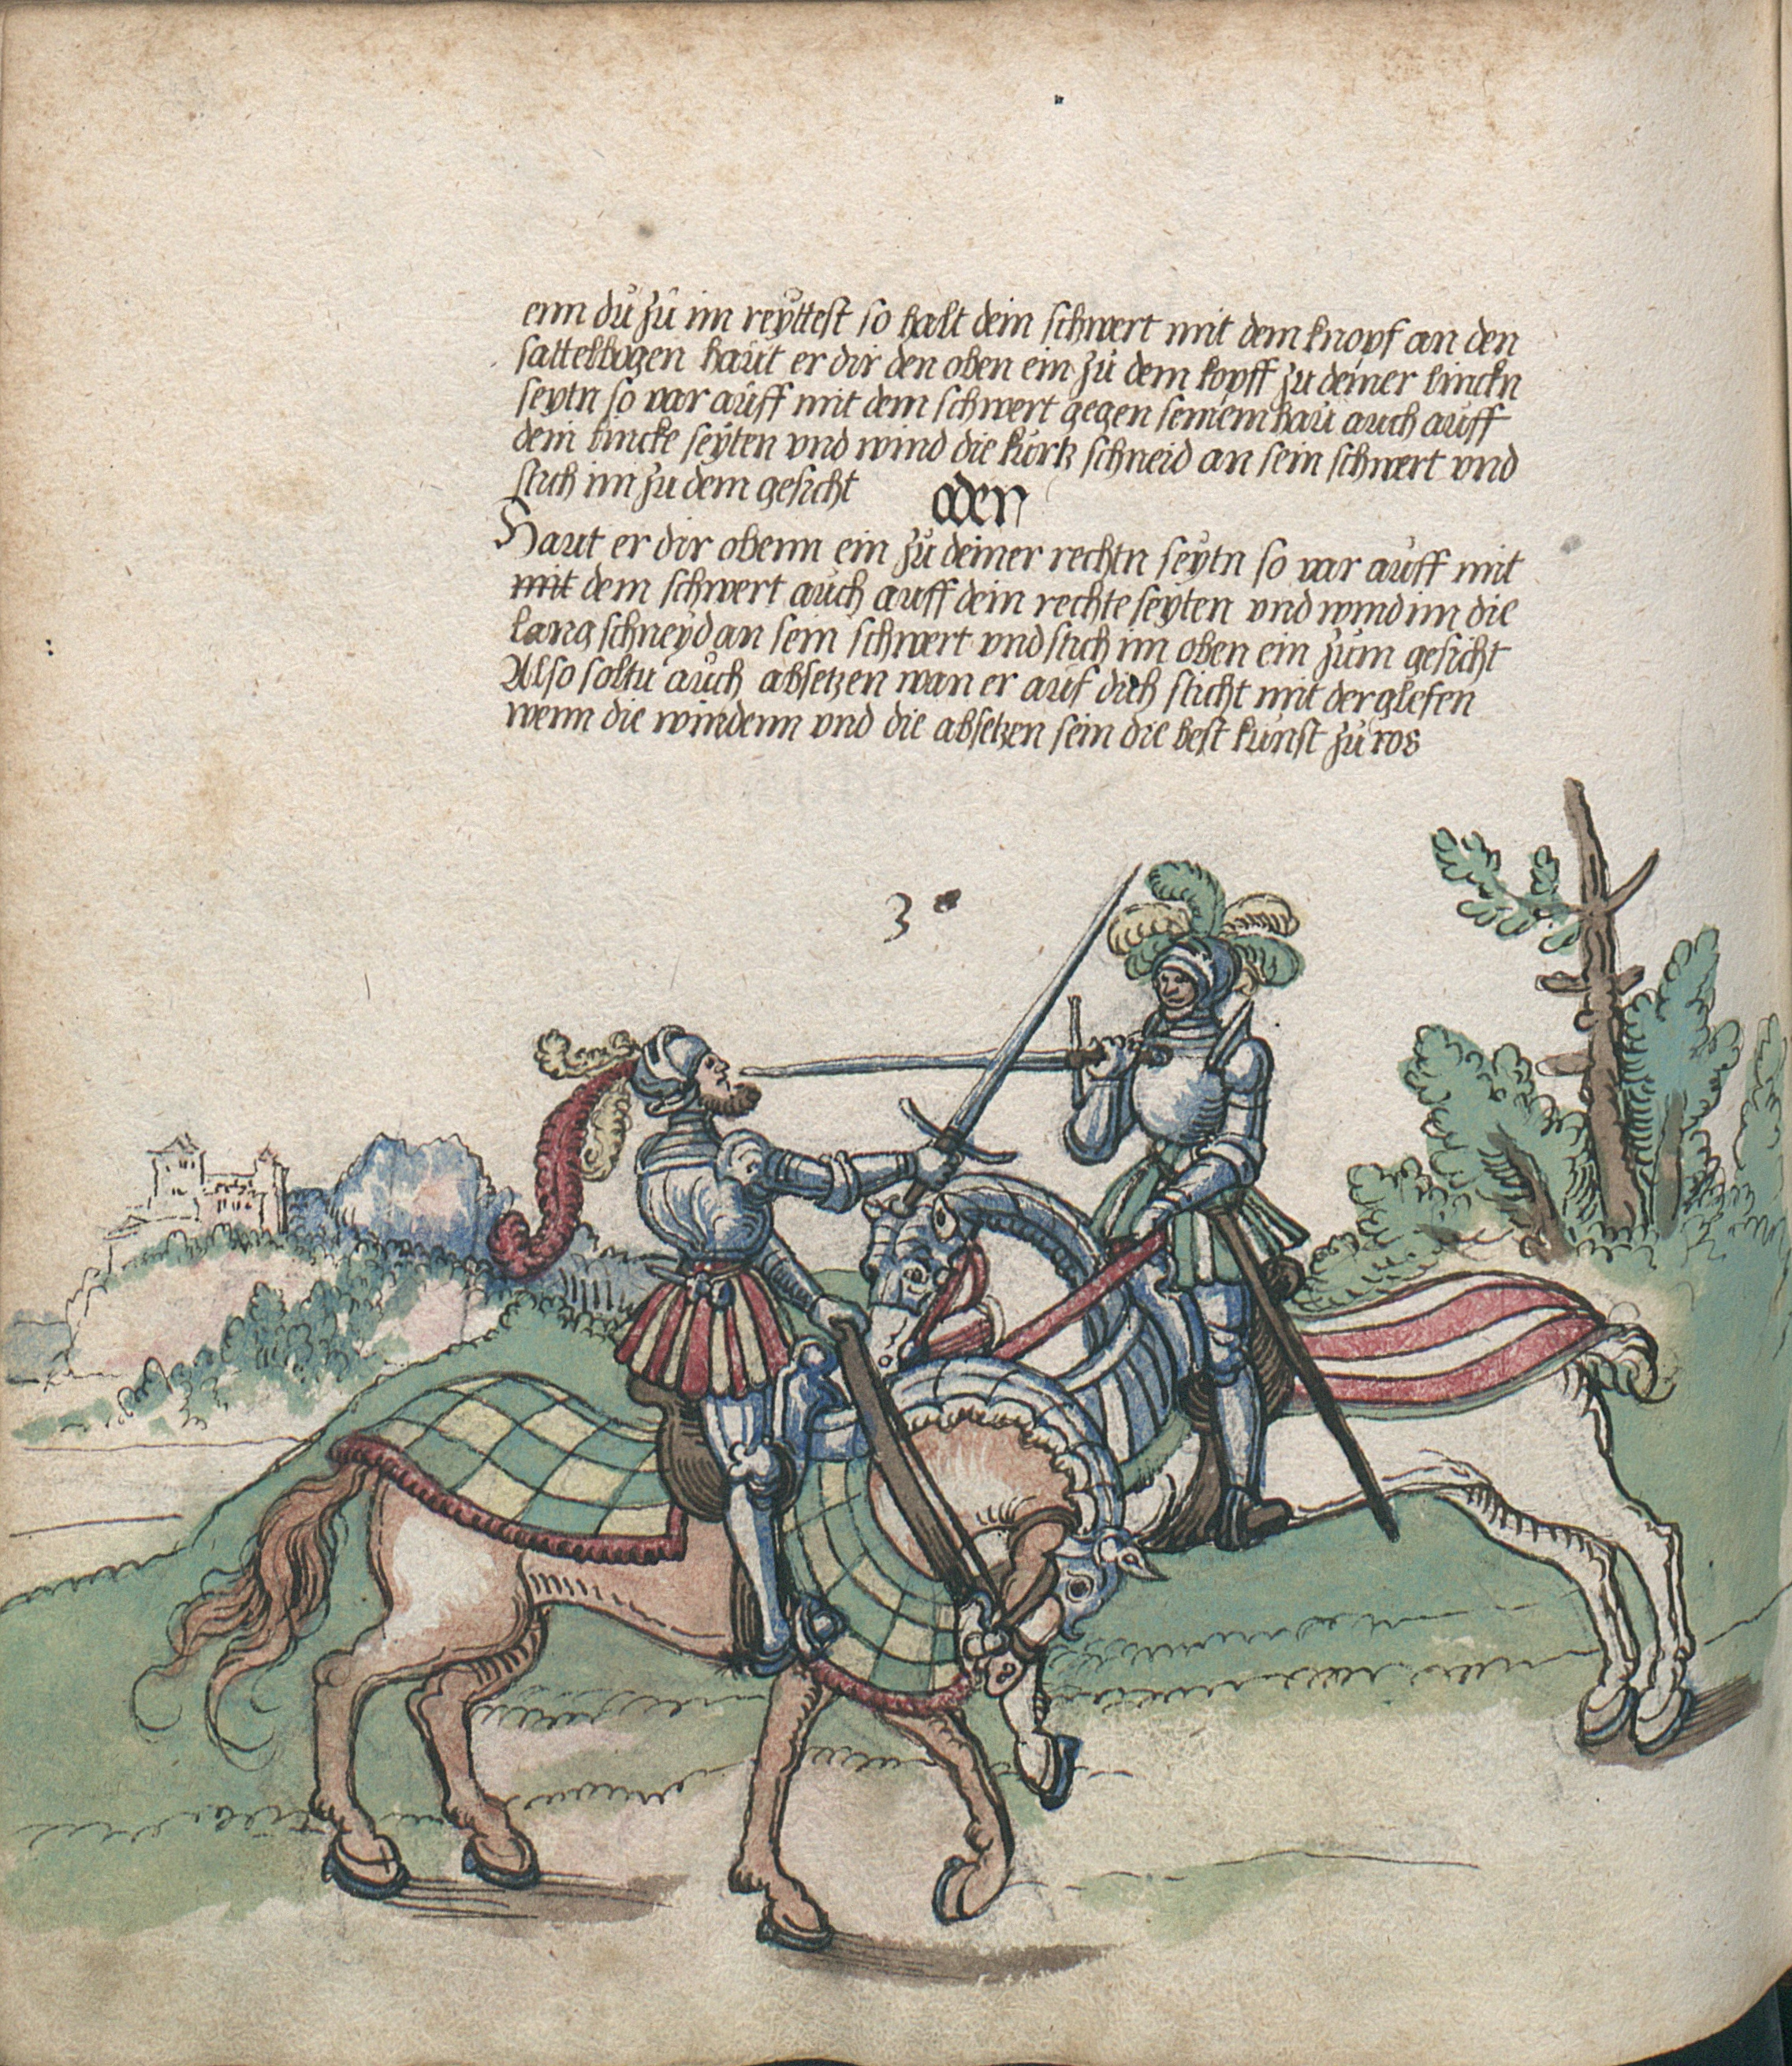 enn du zů im reÿttest so halt dein schwert mit dem knopf an den
sattelbogen haut er dir den oben ein zů dem kopff zu deiner linckn
seytn so var auff mit dem schwert gegen seinem hau auch auff
dein lincke seÿten vnd wind die kurtz schneid an sein schwert vnd
stich im zu dem gesicht oder
Haut er dir obenn ein zů deiner rechtn seÿtn so var auff mit
mit dem schwert auch auff dein rechte seÿten vnd wind im die
lang schneÿd an sein schwert vnd stich im oben ein zum gesicht
Also soltu auch absetzen wan er auf dich sticht mit der glefen
wenn die windenn vnd die absetzen sein die best kunst zů ros
3